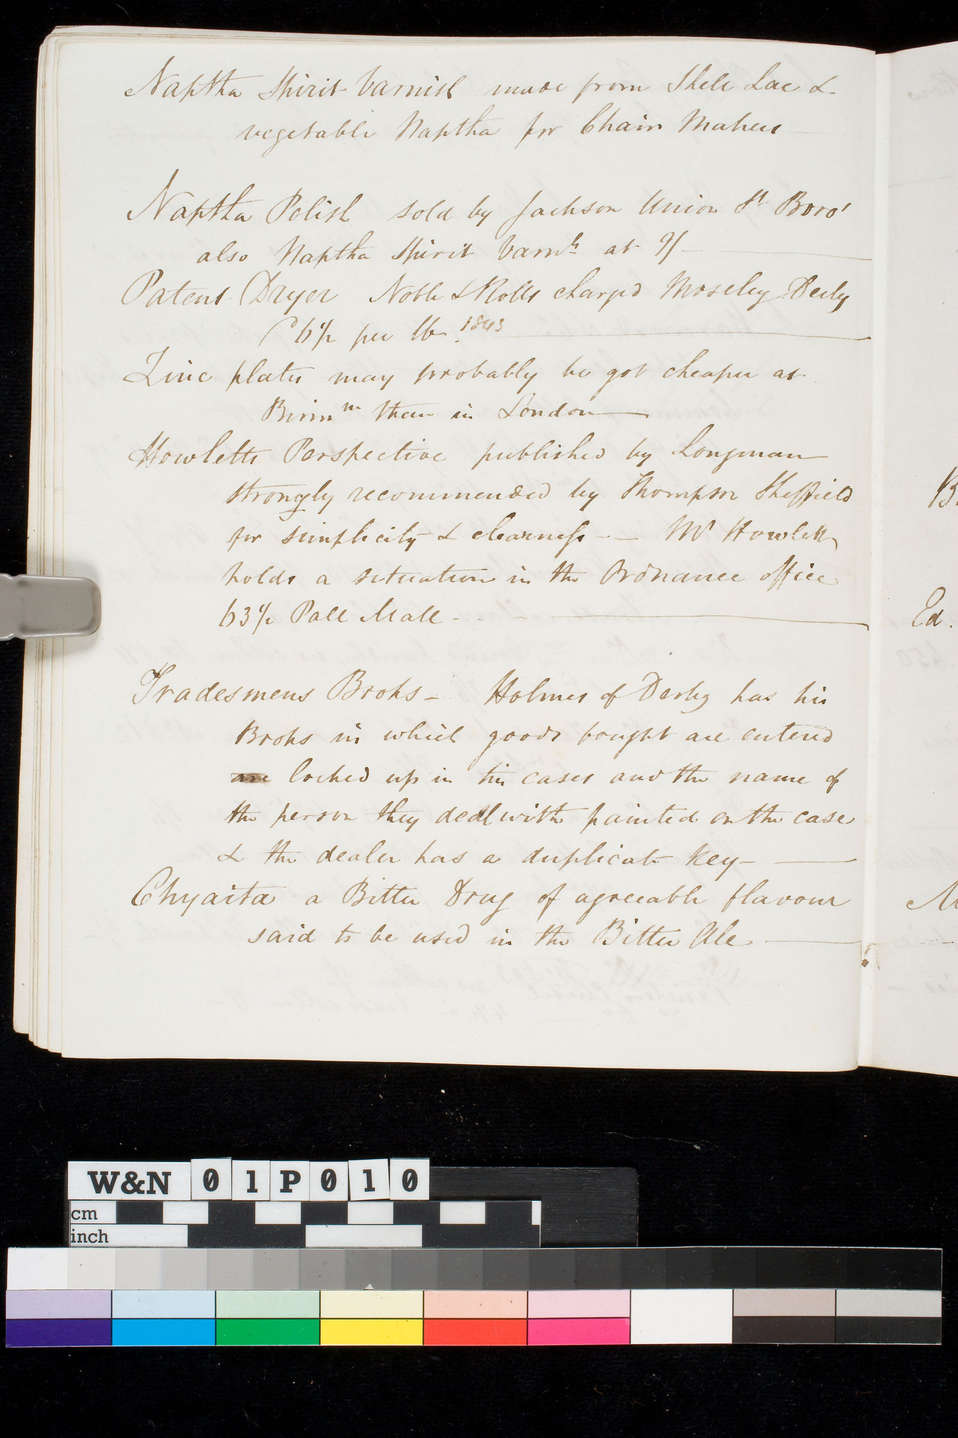 Naptha Spirit Varnish made from Shell Lac &
vegetable Naptha for Chair Makers
Naptha Polish sold by Jackson Union St Boro'
also Naptha Spirit Varnh at 9/-
Patent Dryer Noble & Hoills charged Moseley Derby
6½ per lb. 1843
Zinc plates may probably be got cheaper at
Birmm than in London
Howletts Perspective published by Longman
strongly recommended by Thompson Sheffield
for simplicity & clearness - Mr Howlett
holds a situation in the Ordnance office
83½ Pall Mall
Tradesmens Books - Holmes of Derby has his
Books in which goods bought are entered
locked up in tin cases and the name of
the person they deal with painted on the case
& the dealer has a duplicate key -
Chyaita a Bitter Drug of agreeable flavour
said to be used in the Bitter Ale
B.
Ed.
450
W&N 01P010
cm
inch